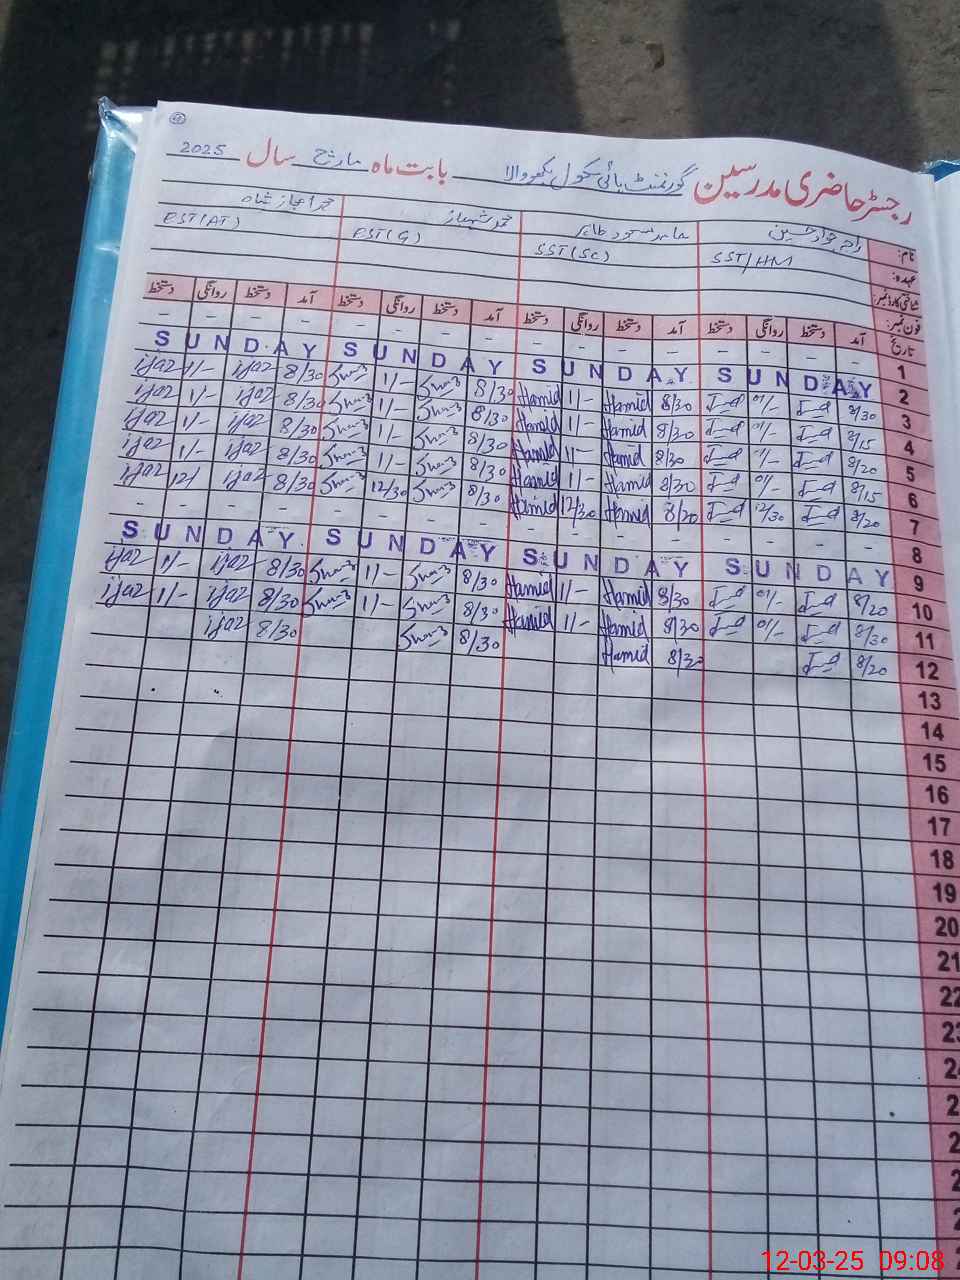 رجسٹر حاضری مدرسین گورنمنٹ ہائی سکول بابت ماہ مارچ سال 2025
نام: عابد مسعود طاہر محمد شہباز محمد اعجاز شاہ
عہدہ: SST/HM SST(SC) EST(G) EST(AT)
شناختی کارڈ نمبر:
فون نمبر:
تاریخ آمد دستخط روانگی دستخط آمد دستخط روانگی دستخط آمد دستخط روانگی دستخط آمد دستخط روانگی دستخط
1 - - - - - - - - - - - - - - - -
2 SUNDAY SUNDAY SUNDAY SUNDAY
3 8/30 01/- 8/30 Hamid 1/- Hamid 8/30 1/- 8/30 ijaz 1/- ijaz
4 8/15 01/- 8/30 Hamid 1/- Hamid 8/30 1/- 8/30 ijaz 1/- ijaz
5 8/20 01/- 8/30 Hamid 1/- Hamid 8/30 1/- 8/30 ijaz 1/- ijaz
6 8/15 01/- 8/30 Hamid 1/- Hamid 8/30 1/- 8/30 ijaz 1/- ijaz
7 8/20 12/30 8/20 Hamid 12/30 Hamid 8/30 12/30 8/30 ijaz ijaz
8 - - - - - - - - - - - - - - - -
9 SUNDAY SUNDAY SUNDAY SUNDAY
10 8/20 01/- 8/30 Hamid 1/- Hamid 8/30 1/- 8/30 ijaz 1/- ijaz
11 8/30 01/- 8/30 Hamid 1/- Hamid 8/30 1/- 8/30 ijaz 1/- ijaz
12 8/20 8/30 Hamid 8/30 8/30 ijaz
13
14
15
16
17
18
19
20
21
22
23
12-03-25 09:08